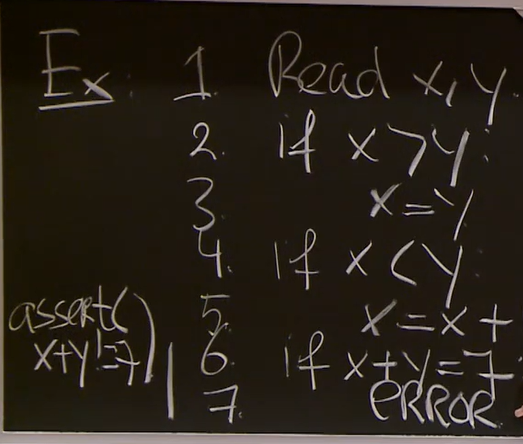 Ex: 1. Read x, y.
2. if x > y:
3. x = y
4. if x < y:
5. x = x +
6. if x + y = 7
7. ERROR
assert(
x+y != 7)